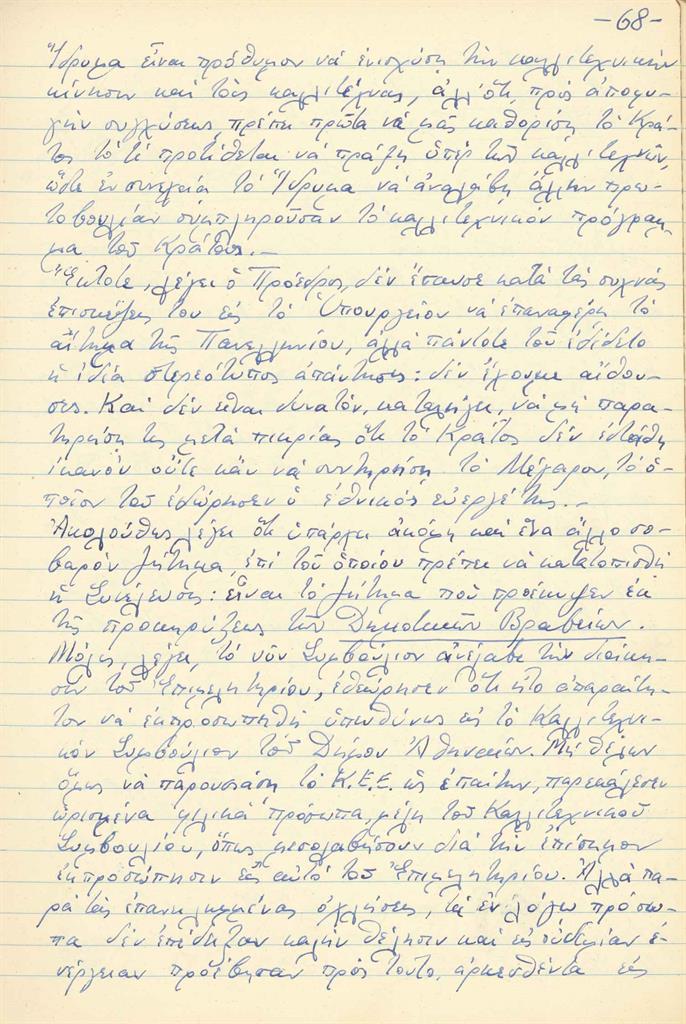 -68-
Ἵδρυμα εἶναι πρόθυμον νά ἐνισχύση τήν καλλιτεχνικήν
κίνησιν καί τούς καλλιτέχνας, ἀλλ' ὅτι, πρός ἀποφυ-
γήν συγχύσεως, πρέπει πρῶτα νά μᾶς καθορίση τό Κρά-
τος τό τί προτίθεται νά πράξη ὑπέρ τῶν καλλιτεχνῶν,
ὥστε ἐν συνεχεία τό Ἵδρυμα νά ἀναλάβη ἄλλην πρω-
τοβουλίαν συμπληροῦσαν τό καλλιτεχνικόν πρόγραμ-
μα τοῦ Κράτους.-
Ἔκτοτε, λέγει ὁ Πρόεδρος, δέν ἔπαυσε κατά τάς συχνάς
ἐπισκέψεις του εἰς τό Ὑπουργεῖον νά ἐπαναφέρη τό
αἴτημα τῆς Πανελληνίου, ἀλλά πάντοτε τοῦ ἐδίδετο
ἡ ἰδία στερεότυπος ἀπάντησις: δέν ἔχουμε αἴθου-
σες. Καί δέν εἶναι δυνατόν, καταλήγει, νά μή παρα-
τηρήση τις μετά πικρίας ὅτι τό Κράτος δέν ἐστάθη
ἱκανόν οὔτε κἄν νά συντηρήση τό Μέγαρον, τό ὁ-
ποῖον τοῦ ἐδώρησεν ὁ ἐθνικός εὐεργέτης.-
Ἀκολούθως λέγει ὅτι ὑπάρχει ἀκόμη καί ἕνα ἄλλο σο-
βαρόν ζήτημα, ἐπί τοῦ ὁποίου πρέπει νά κατατοπισθῆ
ἡ Συνέλευσις: εἶναι τό ζήτημα πού προέκυψεν ἐκ
τῆς προκηρύξεως τῶν Δημοτικῶν Βραβείων.
Μόλις, λέγει, τό νῦν Συμβούλιον ἀνέλαβε τήν διοίκη-
σιν τοῦ Ἐπιμελητηρίου, ἐθεώρησεν ὅτι ἦτο ἀπαραίτη-
τον νά ἐκπροσωπηθῆ ὑπευθύνως εἰς τό Καλλιτεχνι-
κόν Συμβούλιον τοῦ Δήμου Ἀθηναίων. Μή θέλων
ὅμως νά παρουσιάση τό Κ.Ε.Ε. ὡς ἐπαίτην, παρεκάλεσεν
ὡρισμένα φιλικά πρόσωπα, μέλη τοῦ Καλλιτεχνικοῦ
Συμβουλίου, ὅπως μεσολαβήσουν διά τήν ἐπίσημον
ἐκπροσώπησιν εἰς αὐτό τοῦ Ἐπιμελητηρίου. Ἀλλά πα-
ρά τάς ἐπανειλημμένας ὀχλήσεις, τά ἐν λόγω πρόσω-
πα δέν ἐπέδειξαν καλήν θέλησιν καί εἰς οὐδεμίαν ἐ-
νέργειαν προέβησαν πρός τοῦτο, ἀρκεσθέντα εἰς